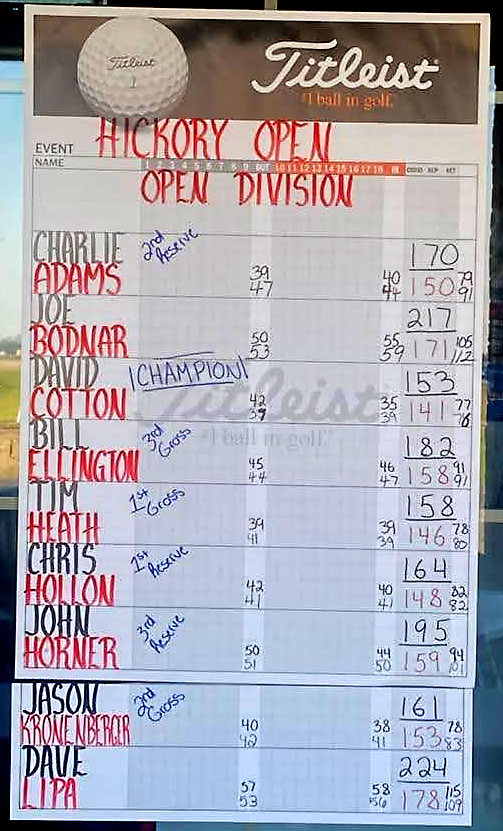 Titleist
1
Titleist
#1 ball in golf.
EVENT HICKORY OPEN
NAME 1 2 3 4 5 6 7 8 9 OUT 10 11 12 13 14 15 16 17 18 IN GROSS HCP NET
OPEN DIVISION
CHARLIE ADAMS 2nd Reserve 39 47 40 44 170 150 79 91
JOE BODNAR 50 53 55 59 217 171 105 112
DAVID COTTON CHAMPION 42 37 35 39 153 141 77 76
Titleist
#1 ball in golf.
BILL ELLINGTON 3rd Gross 45 44 46 47 182 158 91 91
TIM HEATH 1st Gross 39 41 39 39 158 146 78 80
CHRIS HOLLON 1st Reserve 42 41 40 41 164 148 82 82
JOHN HORNER 3rd Reserve 50 51 44 50 195 159 94 101
JASON KRONENBERGER 2nd Gross 40 42 38 41 161 153 78 83
DAVE LIPA 57 53 58 56 224 178 115 109